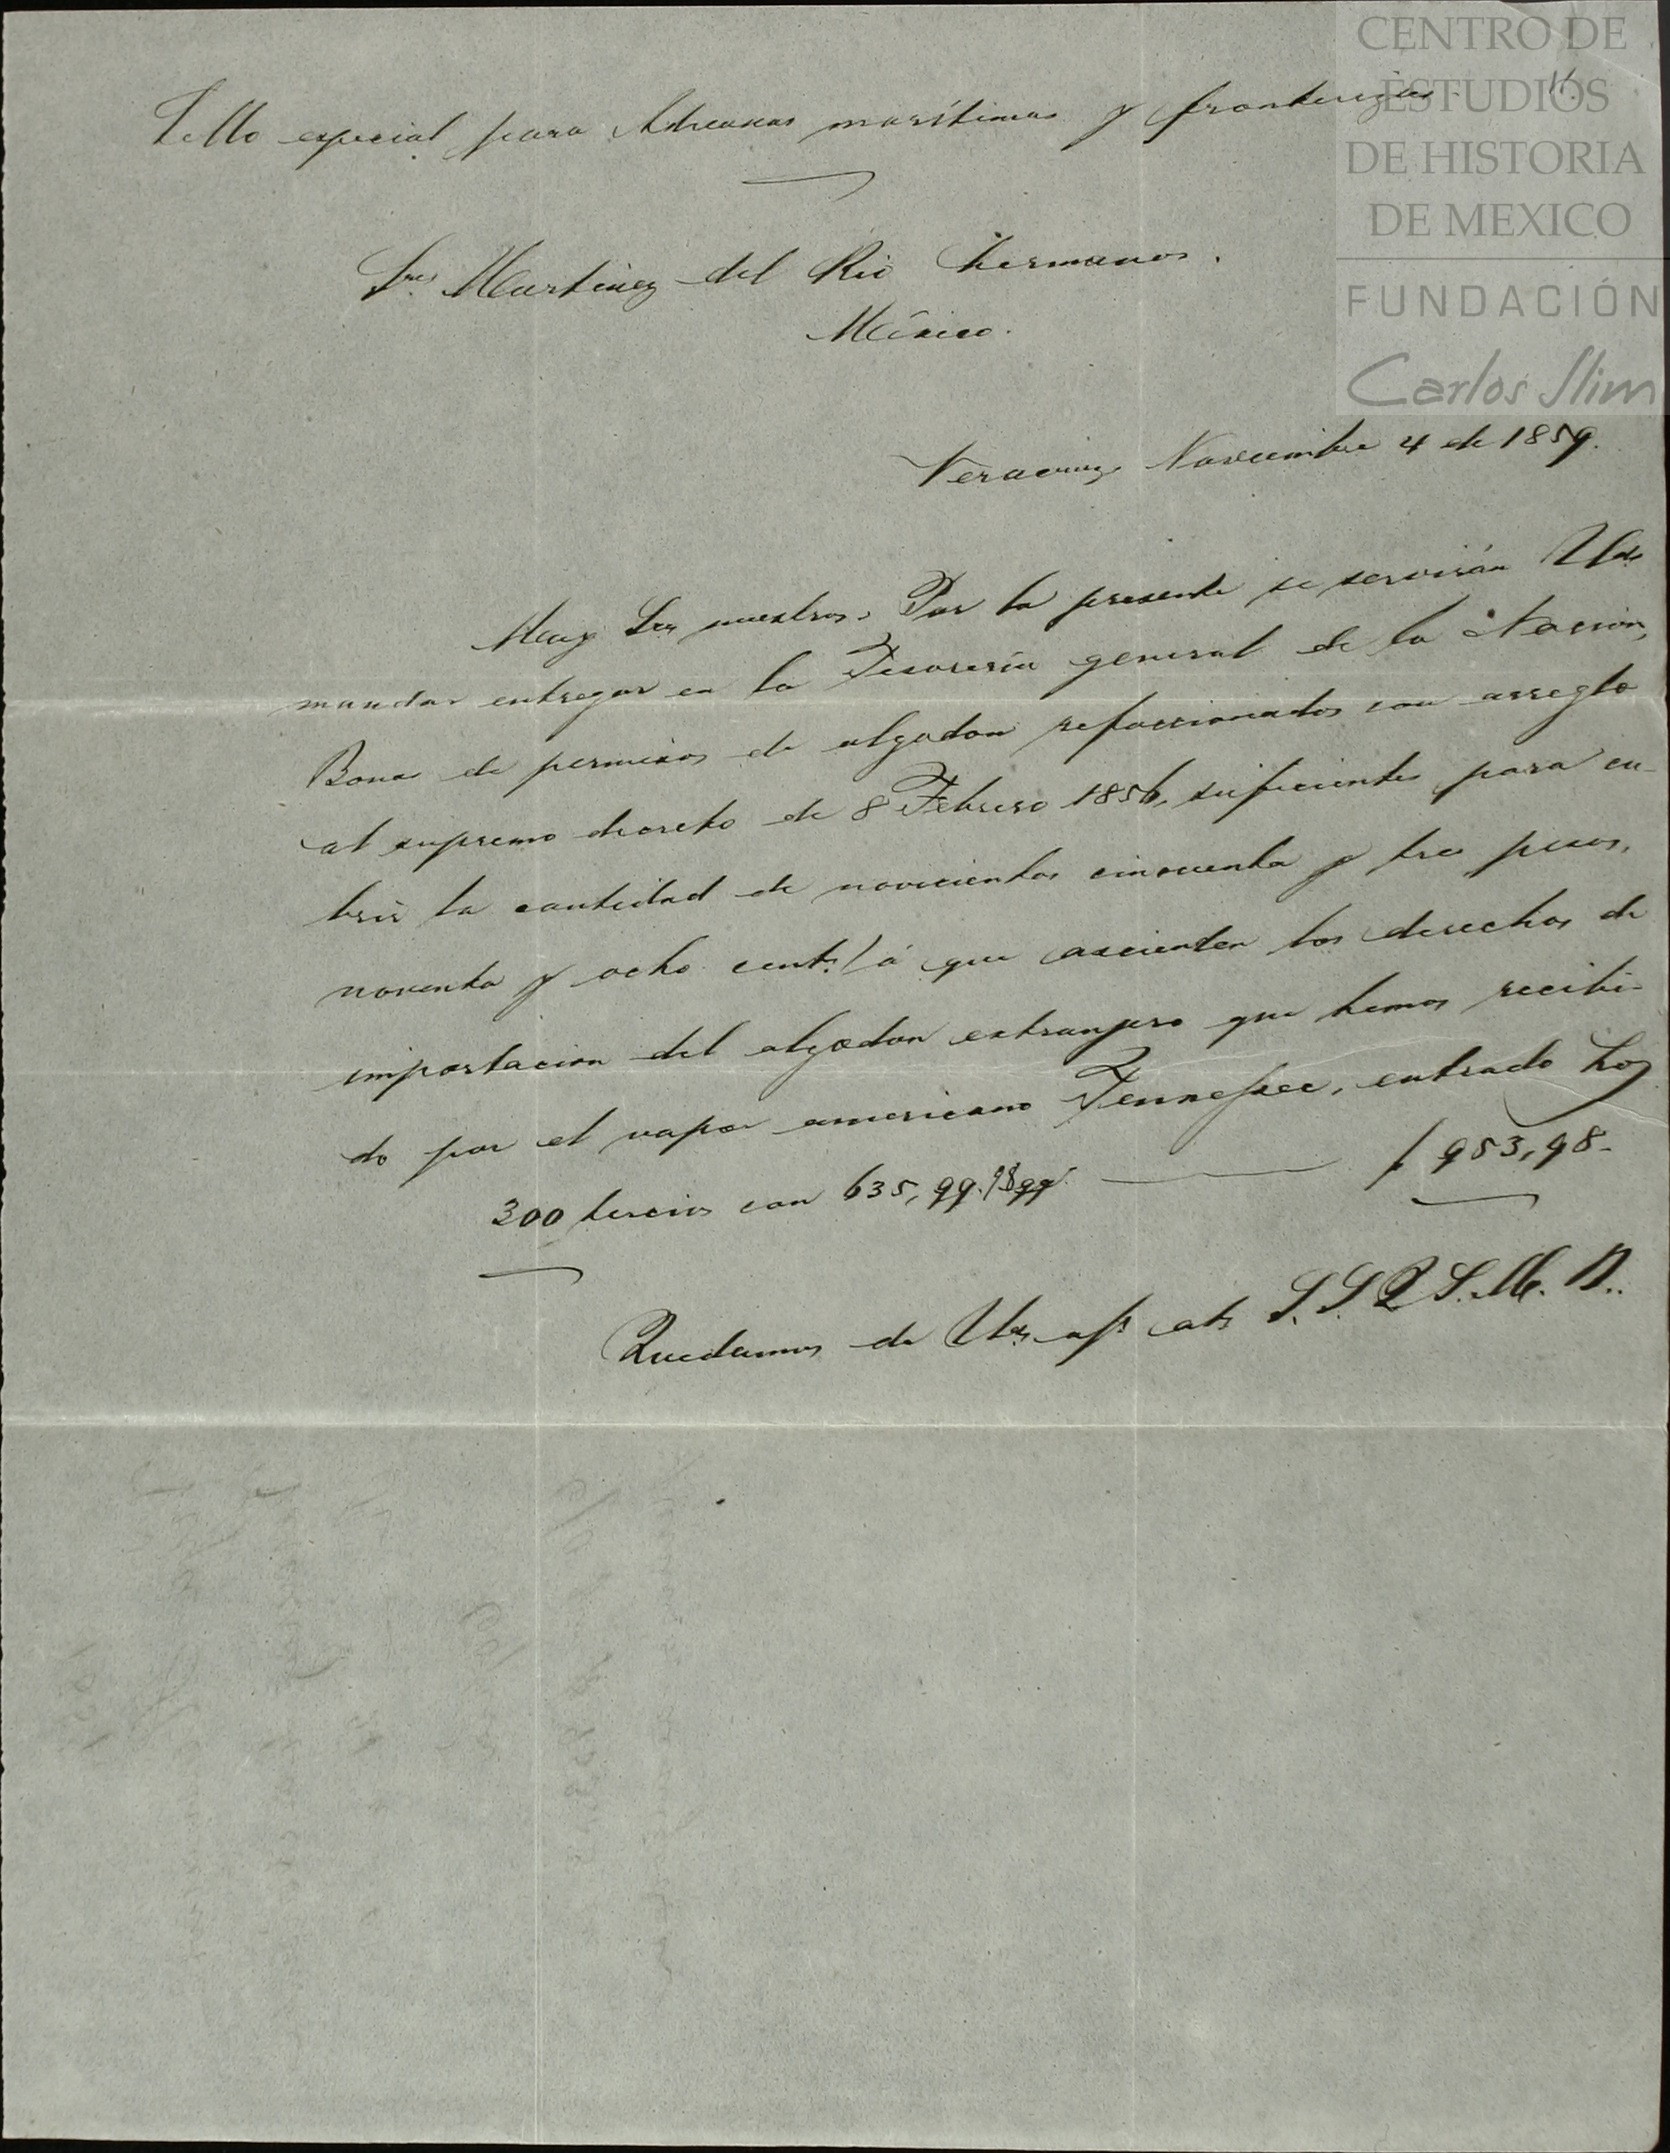 CENTRO DE
ESTUDIOS
DE HISTORIA
DE MEXICO
FUNDACIÓN
Carlos Slim
Sello especial para Aduanas marítimas y fronterizas
Sres Martinez del Rio hermanos.
México.
Veracruz Noviembre 4 de 1859.
Muy Sres nuestros. Por la presente se servirán Uds
mandar entregar en la Tesorería general de la Nacion,
Bonos de permisos de algodon refaccionados con arreglo
al supremo decreto de 8 Febrero 1856, suficientes para cu-
brir la cantidad de novecientos cincuenta y tres pesos,
noventa y ocho cents. á que ascienden los derechos de
importacion del algodon extranjero que hemos recibi-
do por el vapor americano Tennessee, entrado hoy
300 tercios con 635,99 qq. $ 953,98.
Quedamos de Uds. af. ats S.S.Q.S.M.B.